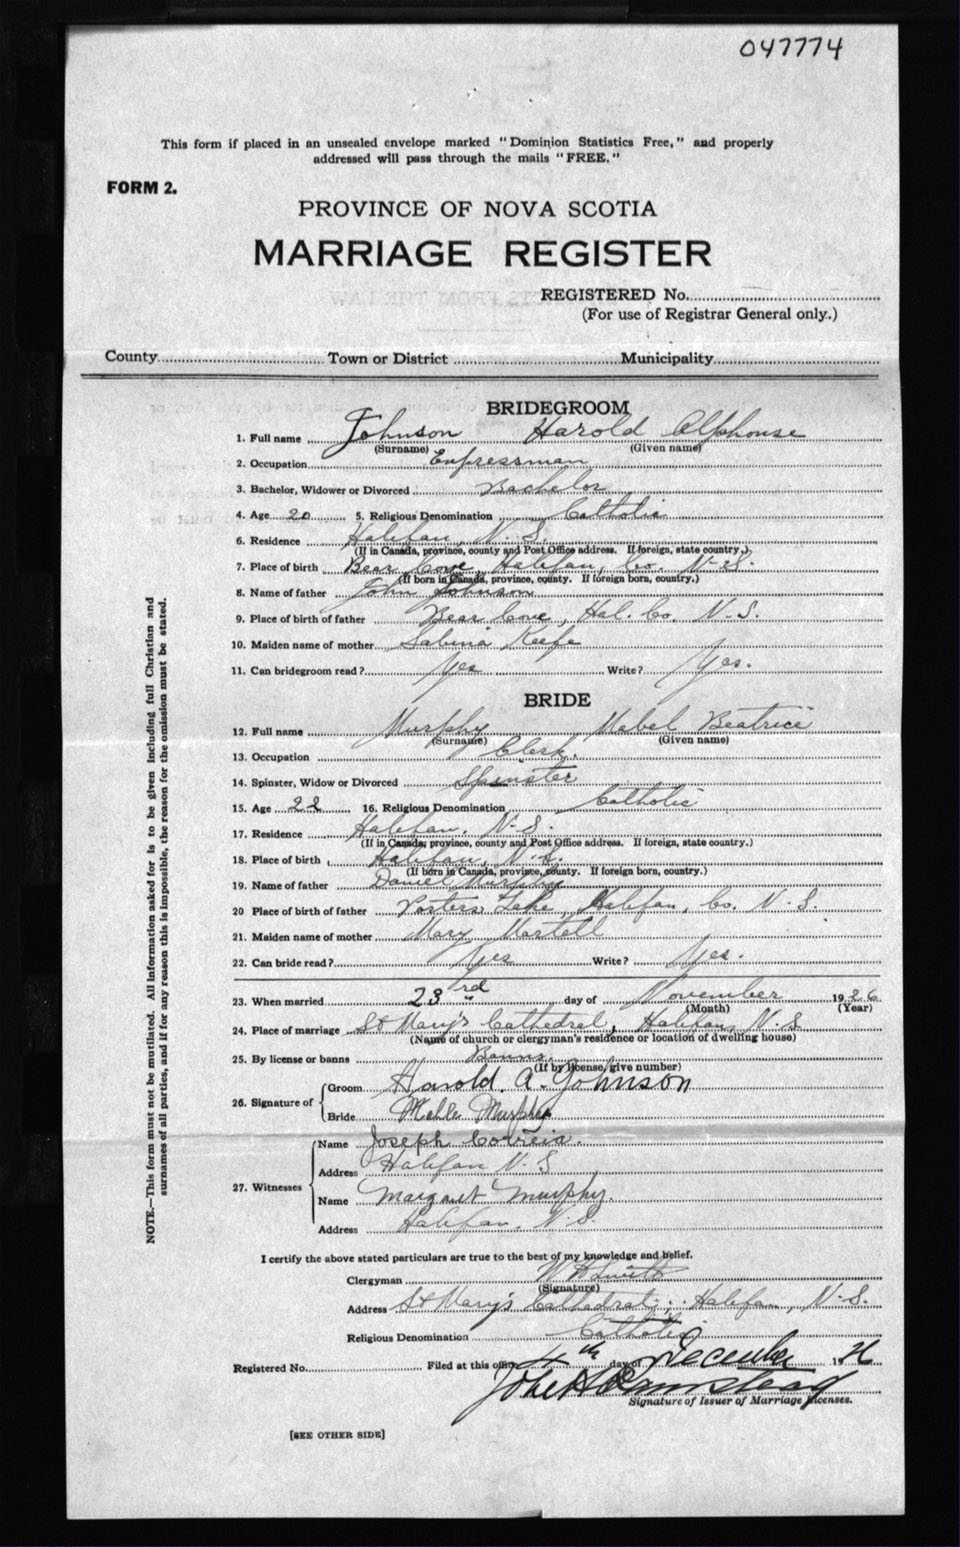 047774
This form if placed in an unsealed envelope marked "Dominion Statistics Free," and properly
addressed will pass through the mails "FREE."
FORM 2.
PROVINCE OF NOVA SCOTIA
MARRIAGE REGISTER
REGISTERED No.
(For use of Registrar General only.)
County Town or District Municipality
BRIDEGROOM
1. Full name Johnson Harold Alphonse
(Surname) (Given name)
2. Occupation Expressman
3. Bachelor, Widower or Divorced Bachelor
4. Age 20 5. Religious Denomination Catholic
6. Residence Halifax, N. S.
(If in Canada, province, county and Post Office address. If foreign, state country.)
7. Place of birth Bear Cove, Halifax, Co. N.S.
(If born in Canada, province, county. If foreign born, country.)
8. Name of father John Johnson
9. Place of birth of father Bear Cove, Hal. Co. N.S.
10. Maiden name of mother Sabina Keefe
11. Can bridegroom read? Yes Write? Yes.
BRIDE
12. Full name Murphy Mabel Beatrice
(Surname) (Given name)
13. Occupation Clerk.
14. Spinster, Widow or Divorced Spinster
15. Age 22 16. Religious Denomination Catholic
17. Residence Halifax, N.S.
(If in Canada, province, county and Post Office address. If foreign, state country.)
18. Place of birth Halifax, N.S.
(If born in Canada, province, county. If foreign born, country.)
19. Name of father Daniel Murphy
20 Place of birth of father Porters Lake, Halifax, Co. N.S.
21. Maiden name of mother Mary Martell
22. Can bride read? Yes Write? Yes.
23. When married 23rd day of November 1926
(Month) (Year)
24. Place of marriage St Mary's Cathedral, Halifax, N.S.
(Name of church or clergyman's residence or location of dwelling house)
25. By license or banns Banns
(If by license, give number)
26. Signature of Groom Harold. A. Johnson
Bride Murphy
27. Witnesses Name Joseph Correia.
Address Halifax N.S
Name Margaret Murphy.
Address Halifax, N.S.
I certify the above stated particulars are true to the best of my knowledge and belief.
Clergyman
(Signature)
Address St Mary's Cathedral, Halifax, N.S.
Religious Denomination Catholic
Registered No. Filed at this office 4th day of December 1926
Signature of Issuer of Marriage Licenses.
[SEE OTHER SIDE]
NOTE.—This form must not be mutilated. All information asked for is to be given including full Christian and
surnames of all parties, and if for any reason this is impossible, the reason for the omission must be stated.